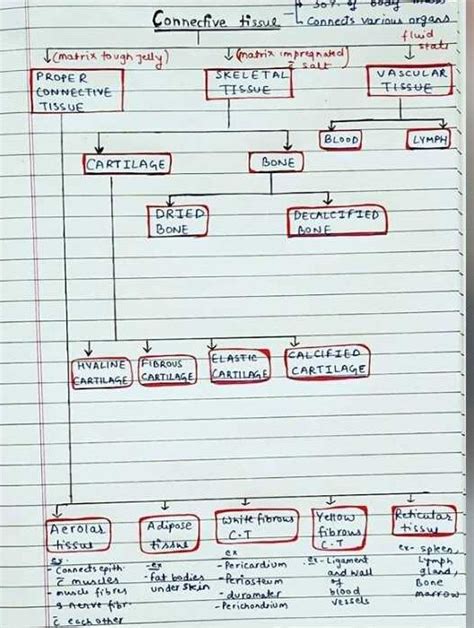 30% of body mass
Connective tissue
Connects various organs
(matrix tough jelly)
(matrix impregnated
c̄ salt)
fluid
state
PROPER
CONNECTIVE
TISSUE
SKELETAL
TISSUE
VASCULAR
TISSUE
BLOOD
LYMPH
CARTILAGE
BONE
DRIED
BONE
DECALCIFIED
BONE
HYALINE
CARTILAGE
FIBROUS
CARTILAGE
ELASTIC
CARTILAGE
CALCIFIED
CARTILAGE
Aerolar
tissue
Adipose
tissue
White fibrous
C.T
Yellow
fibrous
C.T
Reticular
tissue
ex-
- Connects epith.
c̄ muscles
- muscle fibres
& nerve fibr.
c̄ each other
ex-
- fat bodies
under skin
ex
- Pericardium
- Periosteum
- duramater
- Perichondrium
ex- Ligament
and wall
of
blood
vessels
ex- spleen,
Lymph
gland,
Bone
marrow